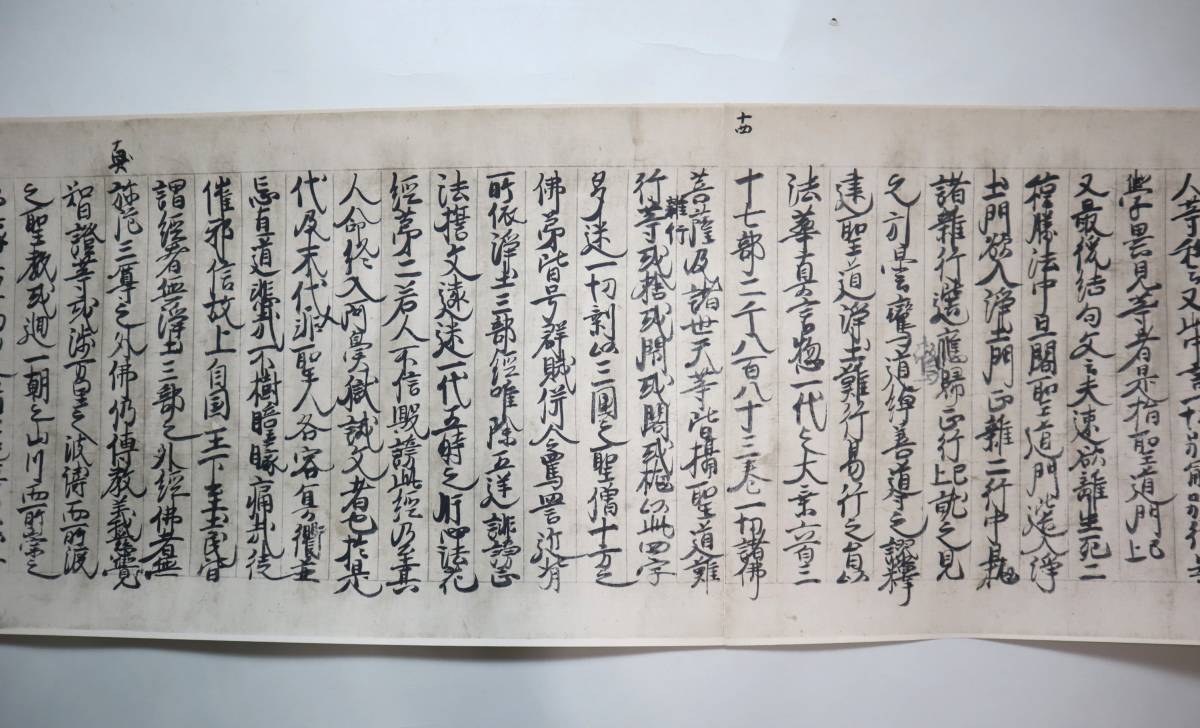 又云此中業一切別解別行
學異見等者是指聖道門已上
又最後結句文云夫速欲離生死二
種勝法中且閣聖道門選入淨
土門欲入淨土門正雜二行中且抛
諸雜行選應歸正行已上就之見
之引曇鸞道綽善導之謬釋
建聖道淨土難行易行之旨以
法華真言惣一代之大乘六百三
十四
十七部二千八百八十三卷一切諸佛
菩薩及諸世天等皆攝聖道難
行雜行等或捨或閉或閣或抛以此四字
多迷一切剩以三國之聖僧十方之
佛弟皆号群賊併令罵詈近背
所依淨土三部經唯除五逆誹謗正
法誓文遠迷一代五時之肝心法花
經第二若人不信毀謗此經乃至其
人命終入阿鼻獄誡文者也於是
代及末代人非聖人各容冥衢並
忘直道悲哉不樹瞳矇痛哉徒
催邪信故上自国王下至土民皆
謂經者無淨土三部之外經佛者無
真
弥陀三尊之外佛仍傳教義慈覺
智證等或渉万里之波濤而所渡
之聖教或廻一朝之山川而所崇之